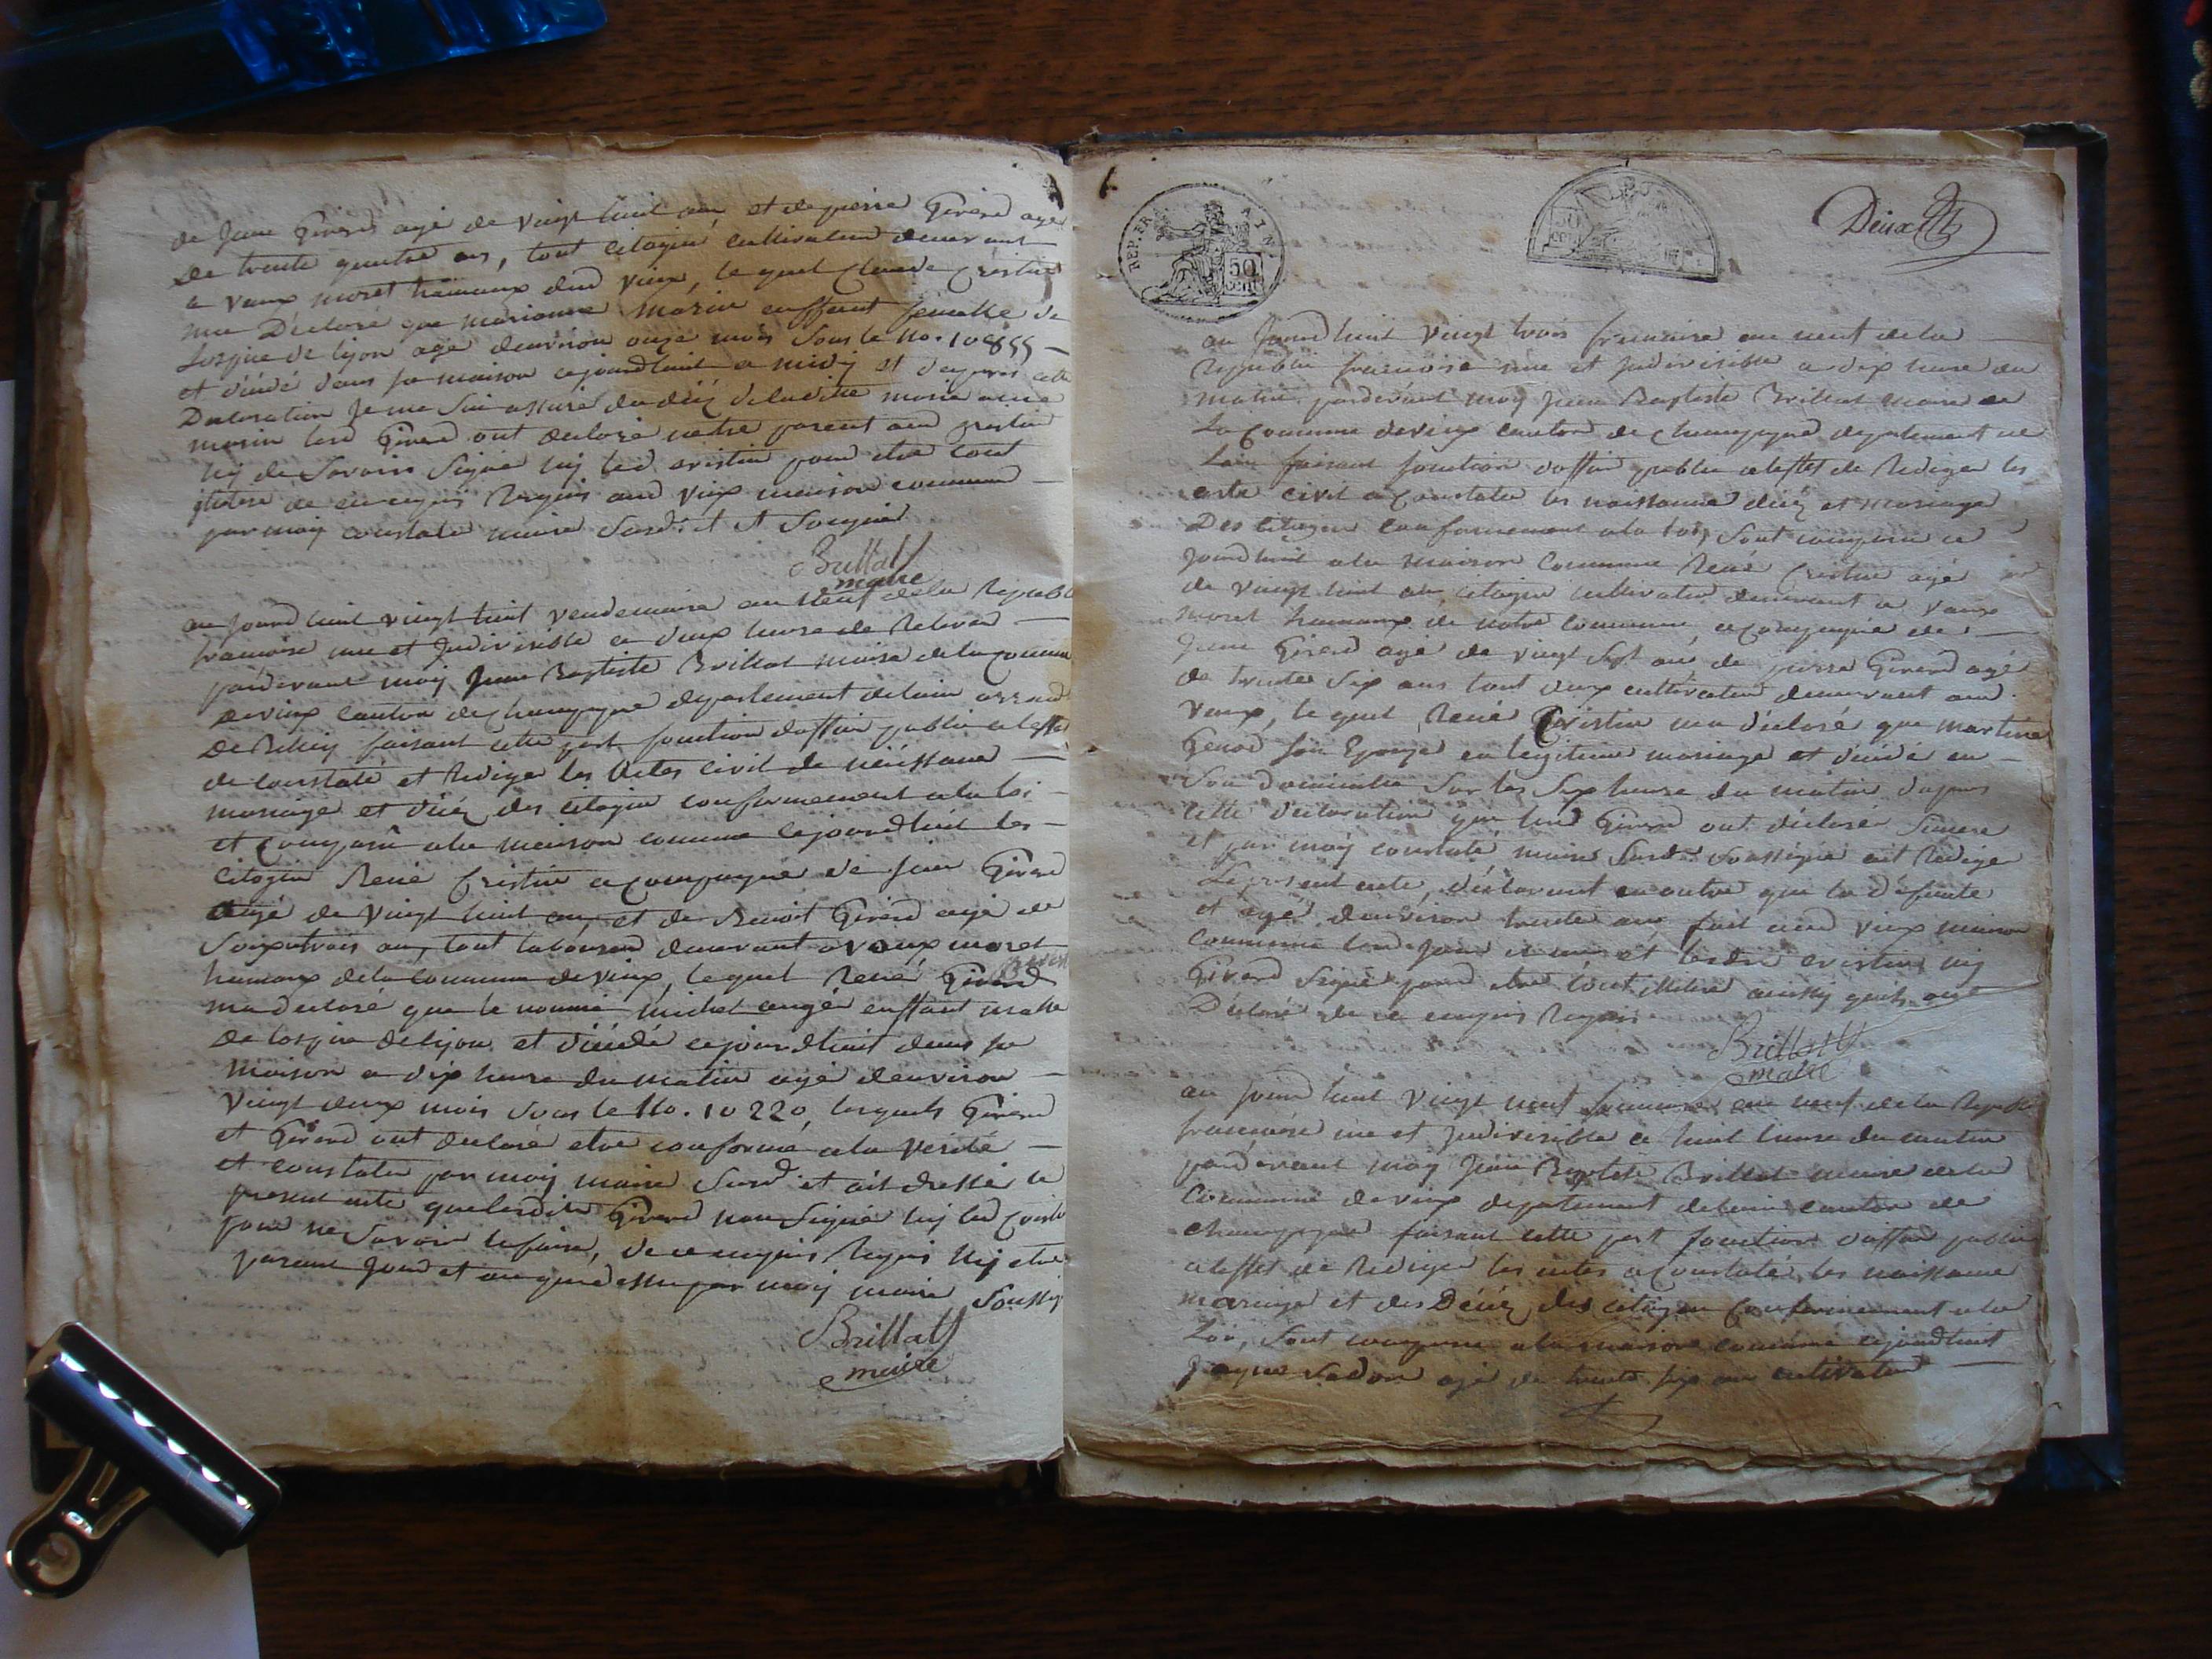 de Jean Girerd agé de vingt huit ans et de pierre Girerd agé
de trente quatre ans, tout citoyens cultivateur demeurant
a vaux moret hamaux dud vieux, le quel Claude Cristin
ma Déclaré que marianne marin enffant femelle de
Lospice de lyon agé denviron onze mois sous le No. 10855
et décédé dans sa maison cejourdhuit a midy et dapres cette
Declaration je me suis assuré du décés deladitte marianne
marin lesd Girerd ont declaré netre parent aud cristin
ny de savoir signé ny led cristin pour etre tout
de ce enquis Requis aud vieux maison commune
par moy constaté maire susd. et Soussigné
Brillat
maire
au jourdhuit vingt huit vendemiaire an neuf dela Republ
francoise une et Indivisible a deux heure de Relevé
pardevant moy Jean Baptiste Brillat maire dela commune
devieux canton de champagne departement delain arrond
De Belley faisant cette part fonction doffier public a leffet
de constaté et Rediger les Actes civil de néissance
mariage et décés des citoyen conformement ala loi
et comparû ala maison commune cejourdhuit les
Citoyen René Cristin acompagné de jean Girerd
Agé de vingt huit ans, et de Benoit Girerd agé de
Soixantrois ans, tout laboureur demeurant a vaux moret
hamaux dela commune devieux, lequel René Girerd
ma declaré que le nommé michel angé enffant malle
de lospice delyon et décédé cejourdhuit dans sa
maison a dix heure du matin agé denviron
vingt deux mois sous le No. 10220, lesquels Girerd
et Girerd ont declaré etre conforme ala verité
et constater par moy maire susd. et ait dressé le
present acte quelesdits Girerd non signé ny led cristin
pour ne savoir lefaire, de ce enquis Requis Ny etre
parent jour et an que dessu par moy maire Soussig
Brillat
maire
REP. FRA
50
CENT
Deux
au Jourdhuit vingt trois frimaire an neuf dela
Republic francoise une et Indivisible a dix heure du
matin pardevant moy Jean Baptiste Brillat maire de
La Commune devieux canton de Champagne departement de
Lain faisant fonction doffier public aleffet de Rediger les
acte civil a Constater les naissance décés et mariage
Des citoyen conformement ala loy, Sont comparu ce
jourdhuit ala maison commune René Cristin agé
de vingt huit ans citoyen cultivateur demeurant a vaux
moret hamaux de notre commune, acompagné de
Jean Girerd agé de vingt sept ans de pierre Girerd agé
de trente six ans tout deux cultivateur demeurant aud
vaux, le quel René Cristin ma déclaré que martine
Genod son Epouze en legitime mariage et décédé en
Son domicile sur les six heure du matin dapres
cette declaration que lesd Girerd ont déclaré sincere
et par moy constaté maire susd. soussigné ait Rediger
Le present acte, déclarant en outre que la défunte
et agé denviron trente ans fait aud vieux maison
commune lesd. jour et an et lesdit cristin ny
Girerd signé pour etre tout illitré ainssy quils ont
Déclaré de ce enquis Requis
Brillat
maire
au jourdhuit vingt neuf frimaire an neuf de la Republ
francoise une et Indivisible a huit heure du matin
pardevant moy Jean Baptiste Brillat maire dela
Commune devieux departement delain canton de
champagne faisant cette part fonction doffier public
aleffet de Rediger les actes a Constaté les naissance
mariage et des Décés des citoyen Conformement ala
Loi, Sont comparu ala maison commune cejourdhuit
agé de trente six ans cultivateur